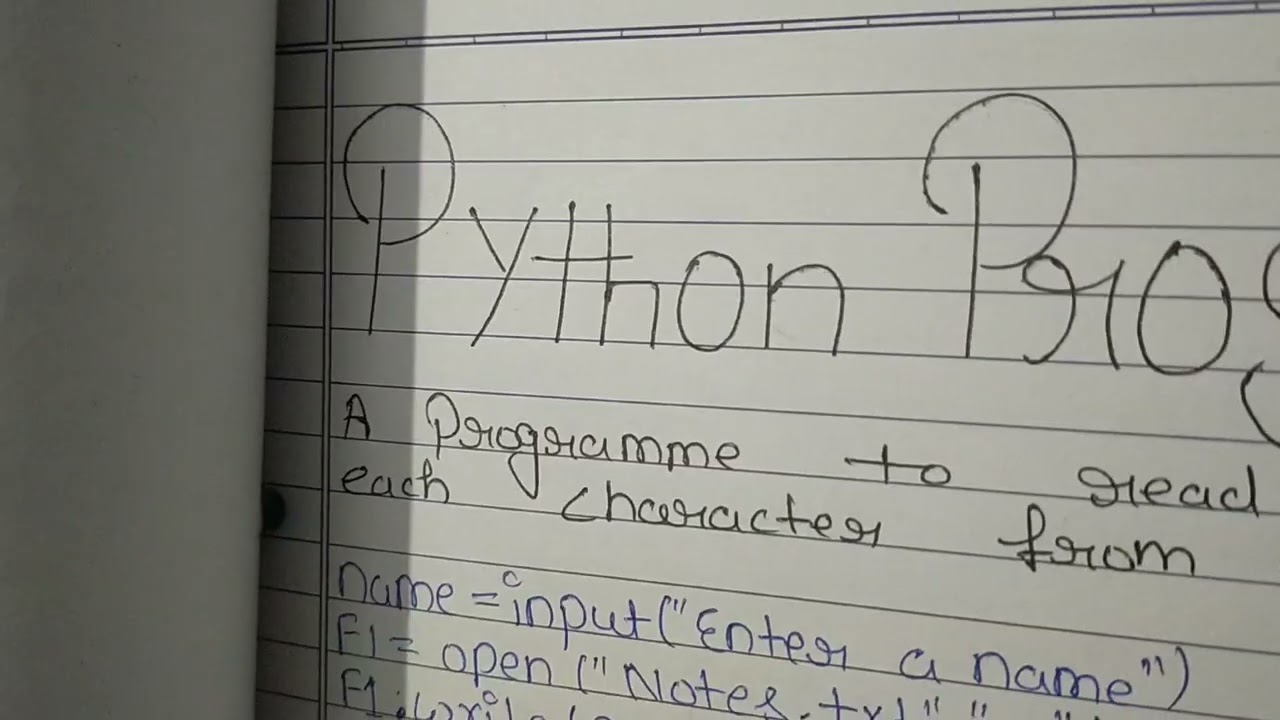 Python Prog
A Programme to read
each character from
name = input("Enter a name")
F1 = open ("Notes.txt"
F1.write